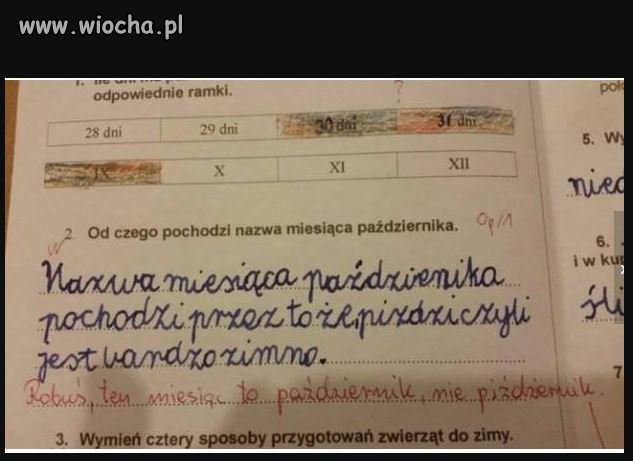 www.wiocha.pl
odpowiednie ramki.
28 dni 29 dni 30 dni 31 dni
IX X XI XII
?
2. Od czego pochodzi nazwa miesiąca października. 0p/1
Nazwa miesiąca października
pochodzi przez to że, pizdzi czyli
jest bardzo zimno.
Robuś, ten miesiąc to październik, nie piździernik.
3. Wymień cztery sposoby przygotowań zwierząt do zimy.
5.
6.
i w
7